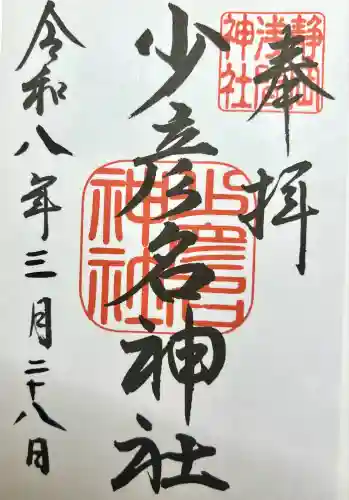 奉拝
静岡
浅間
神社
少彦名神社
神社
令和八年三月二十八日